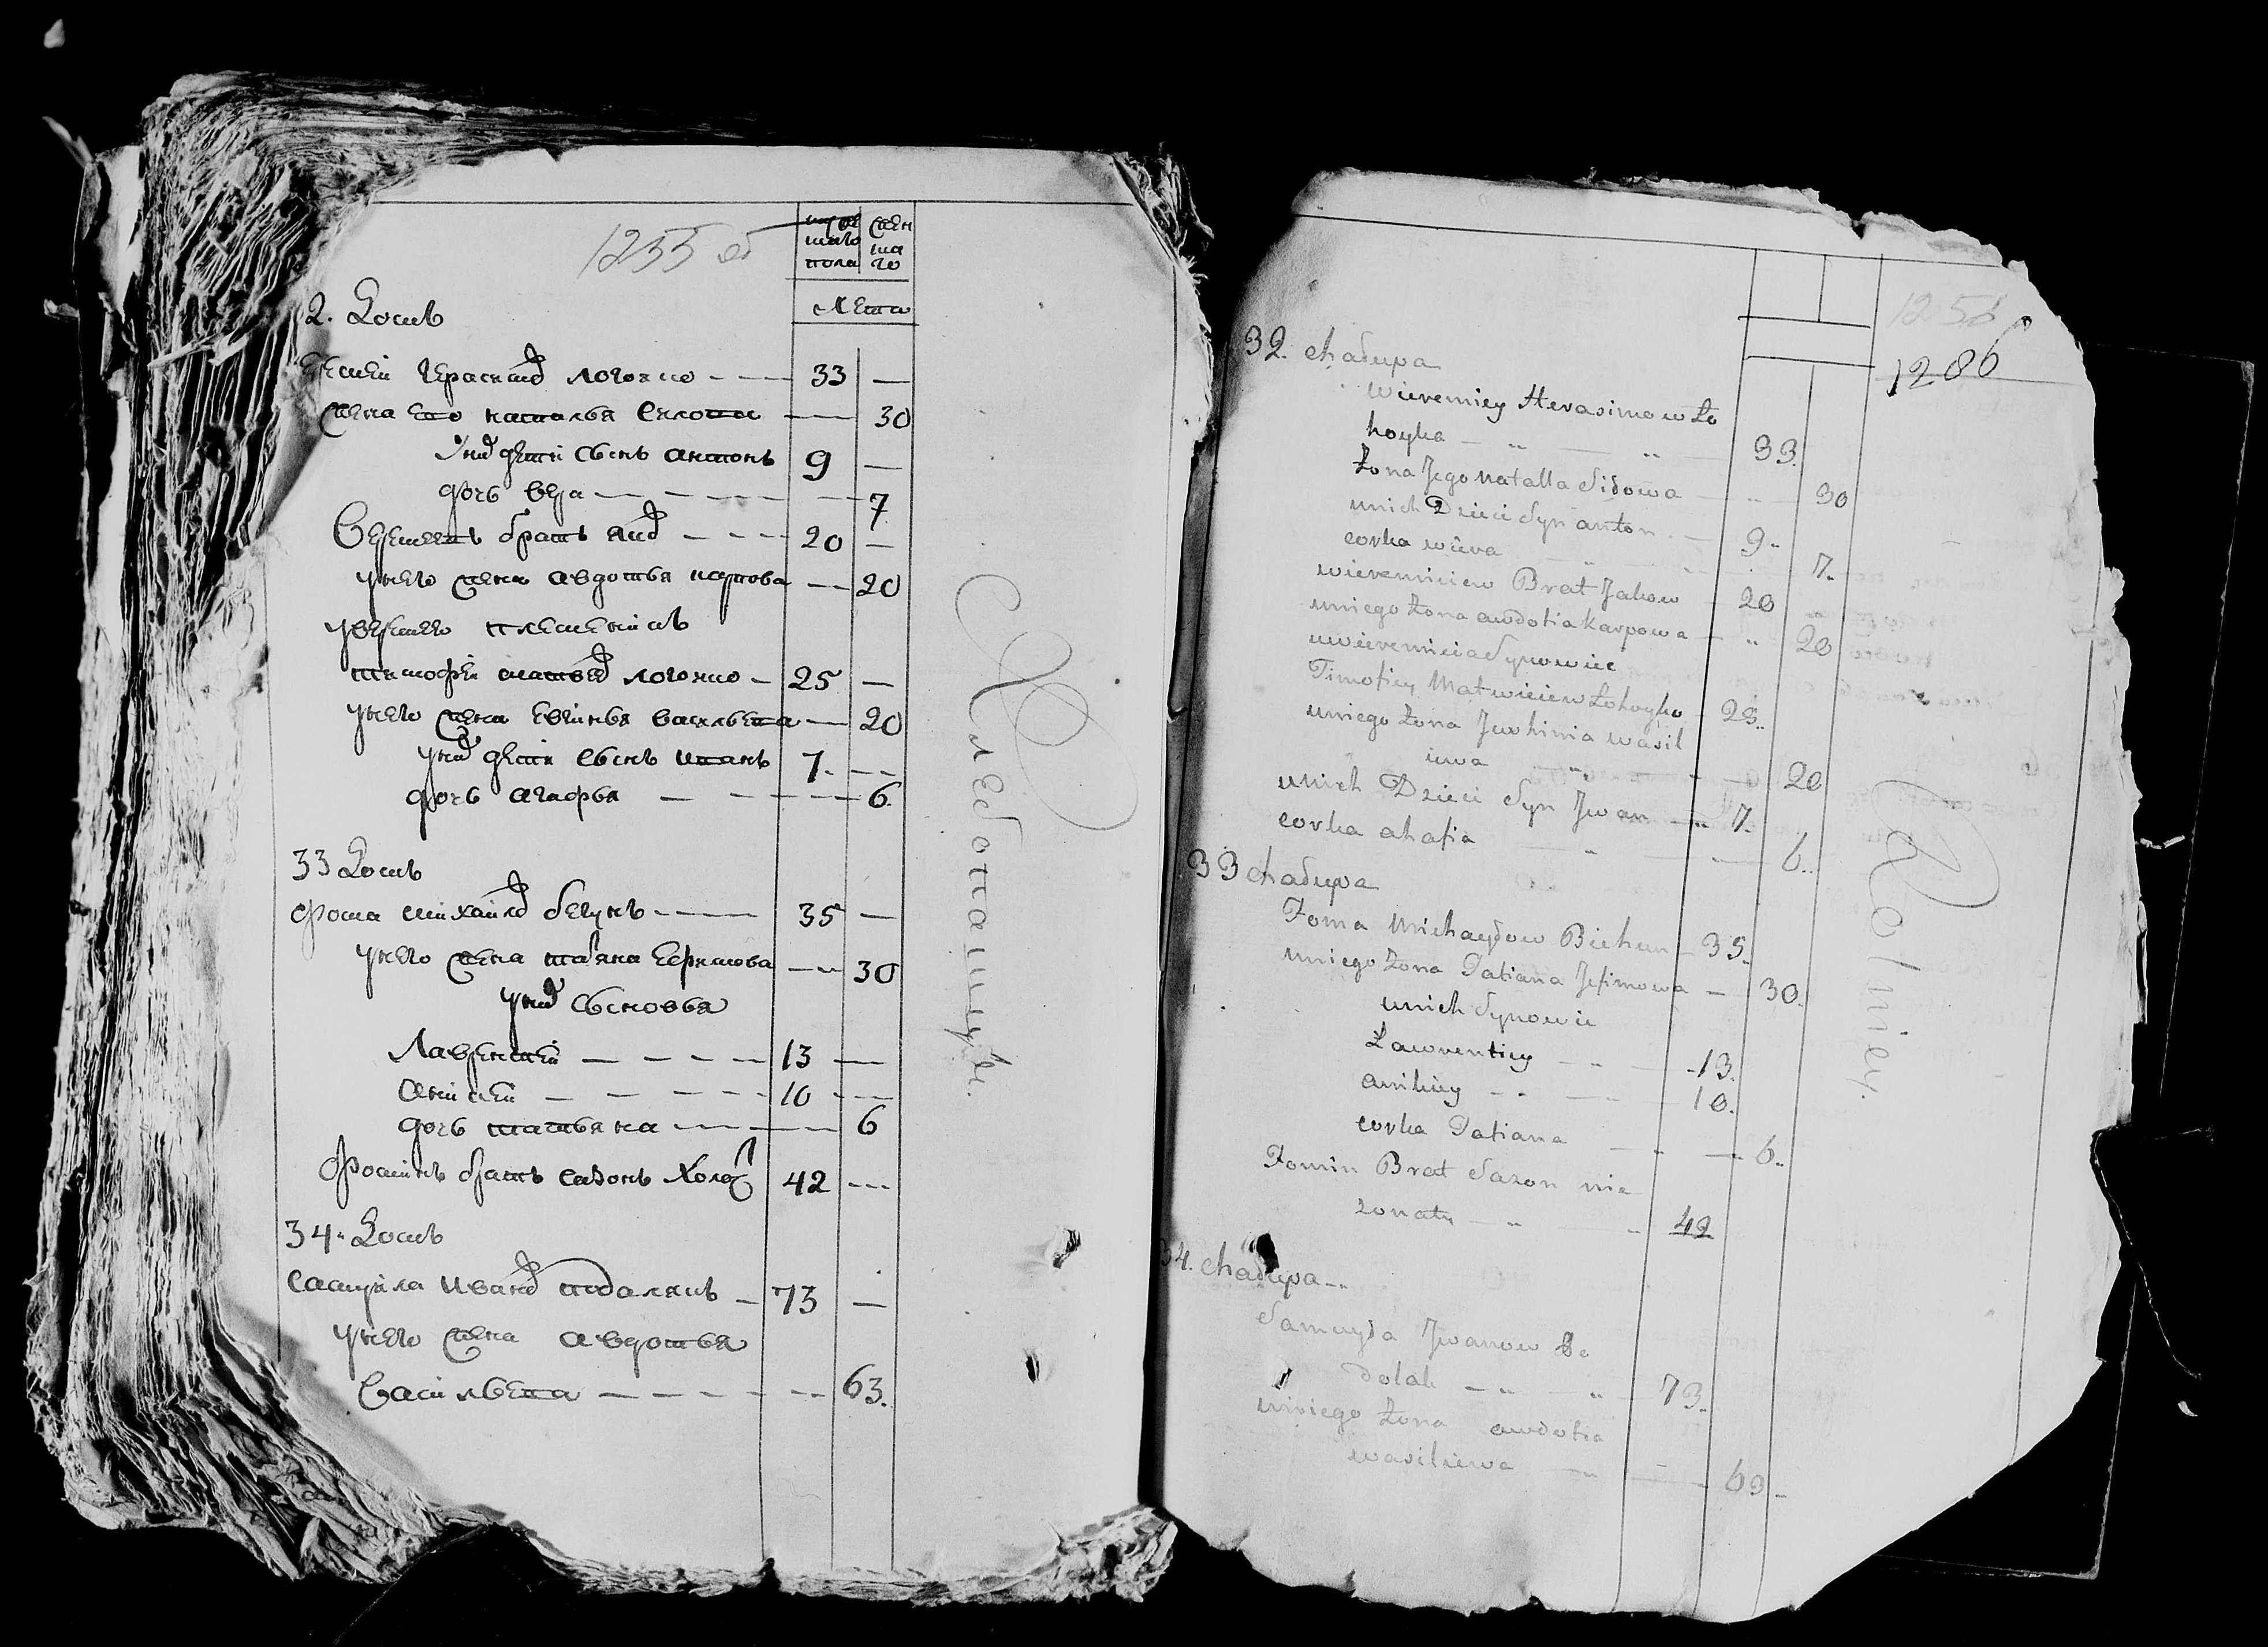 1255 об
мужескаго пола
женскаго
лета
2. Домъ
Еремей Герасимов логойко — 33 —
жена его наталья Сидова — 30
у них дети Сынъ антонъ 9 —
дочь вера — 7
Веремеевъ братъ яков — 20 —
у него жена авдотья карпова — 20
у веремея племенникъ
тимофей матвеев логойко — 25 —
у него жена Евгинья васильева — 20
у них дети Сынъ иванъ 7. —
дочь агафья — 6
33 Домъ
Фома михайлов бегунъ — 35 —
у него жена татяна Ефимова — 30
у них Сыновья
Лаврентей — 13 —
аникей — 10 —
дочь татьяна — 6
Фоминъ братъ сазонъ холост 42 —
34. Домъ
самуйла иванов — 73 —
у него жена авдотья
Васильева — 63.
Хлебопашцы.
1286
32. chałupa
Wieremiey Herasimow Ło
hoyko — 33.
żona Jego natalla Sidowa — 30
unich Dzieci Syn anton — 9
corka wiera 7.
wieremieiew Brat Jakow 20
uniego żona awdotia karpowa — 20
uwieremieia Synowiec
Timofiey Matwieiew Łohoyko 25.
uniego żona Jwhinia wasil
iewa 20
unich Dzieci Syn Jwan — 7.
corka ahafia 6.
33 chałupa
Foma Michayłow Biehun — 35.
uniego żona Tatiana Jefimowa — 30.
unich Synowie
Ławrentiey — 13.
anikiey — 10.
corka Tatiana — 6.
Fomin Brat Sazon nie
żonaty — 42
34. chałupa
Samuyła Jwanow
— 73.
uniego żona awdotia
wasiliewa — 63
Rolniey.